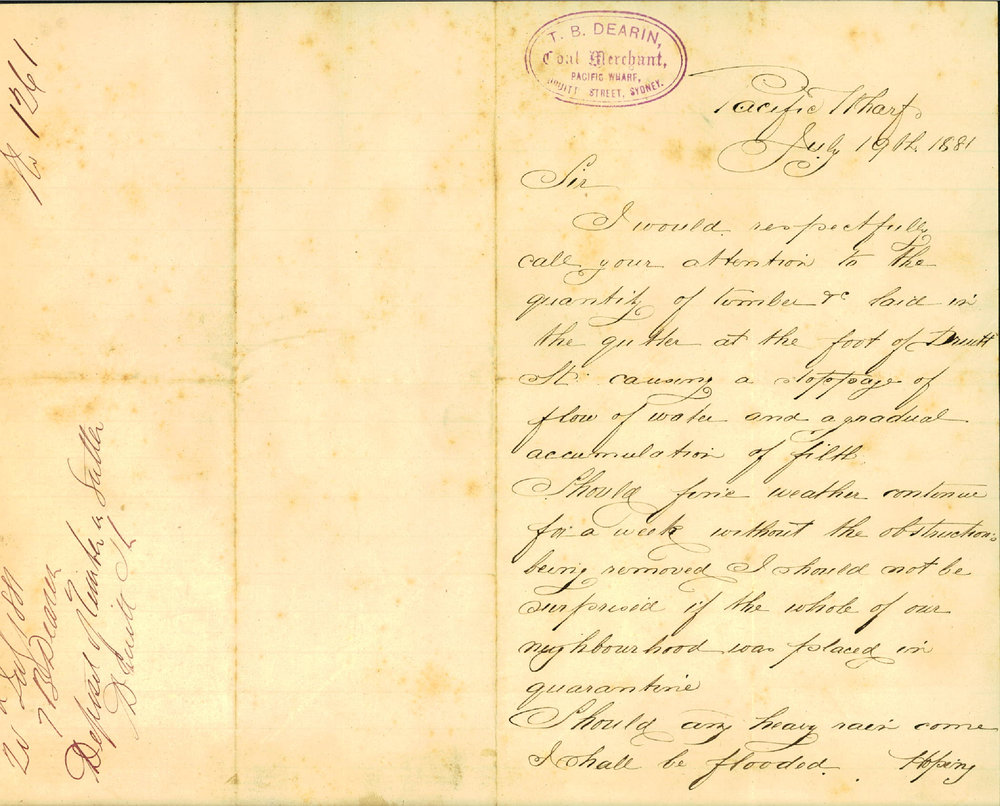 T. B. DEARIN,
Coal Merchant,
PACIFIC WHARF,
DRUITT STREET, SYDNEY.
Pacific Wharf
July 19th. 1881
Sir
I would respectfully
call your attention to the
quantity of timber &c laid in
the gutter at the foot of Druitt
St. causing a stoppage of
flow of water and a gradual
accumulation of filth
Should fine weather continue
for a week without the obstructions
being removed I should not be
surprised if the whole of our
neighbourhood was placed in
quarantine
Should any heavy rain come
I shall be flooded. Hoping
No 1261
21 July 1881
T B Dearin
Deposit of Timber in Gutter
Druitt St